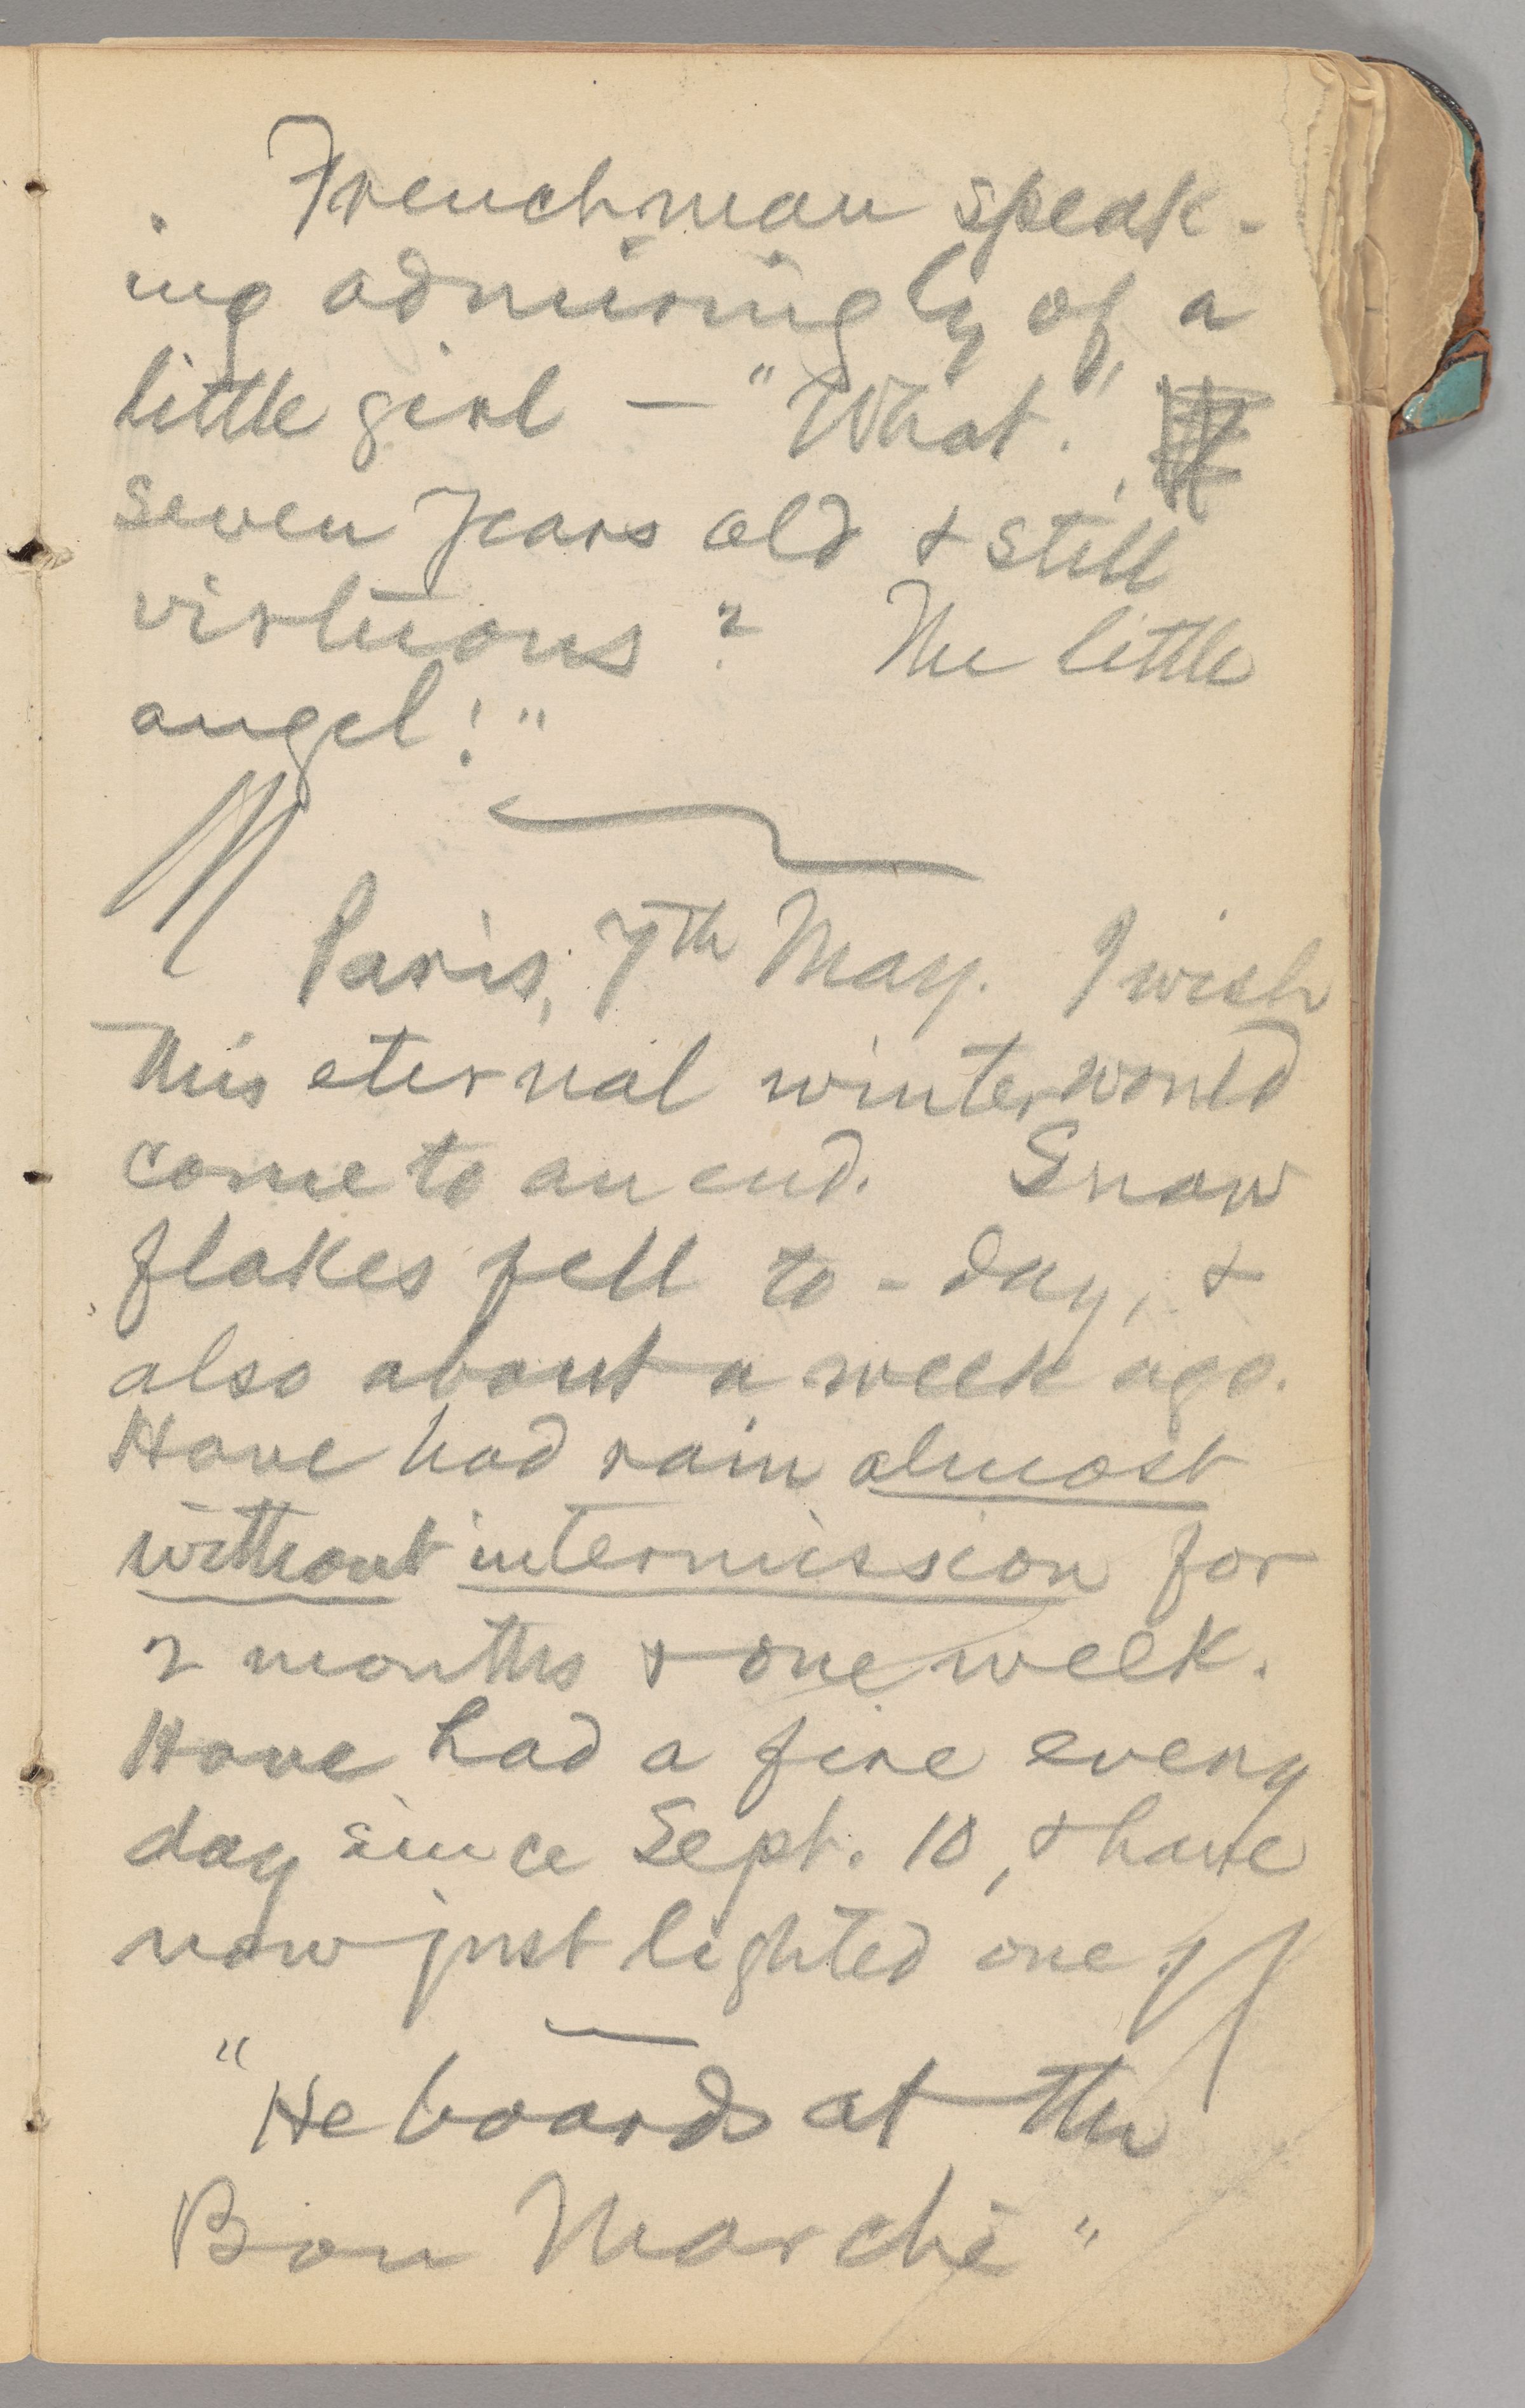 Frenchman speak-
ing admiringly of a
little girl — "What!
seven years old & still
virtuous? The little
angel!"
Paris, 7th May. I wish
this eternal winter would
come to an end. Snow
flakes fell to-day, &
also about a week ago.
Have had rain almost
without intermission for
2 months & one week.
Have had a fire every
day since Sept. 10, & have
now just lighted one.
"He boards at the
Bon Marché"